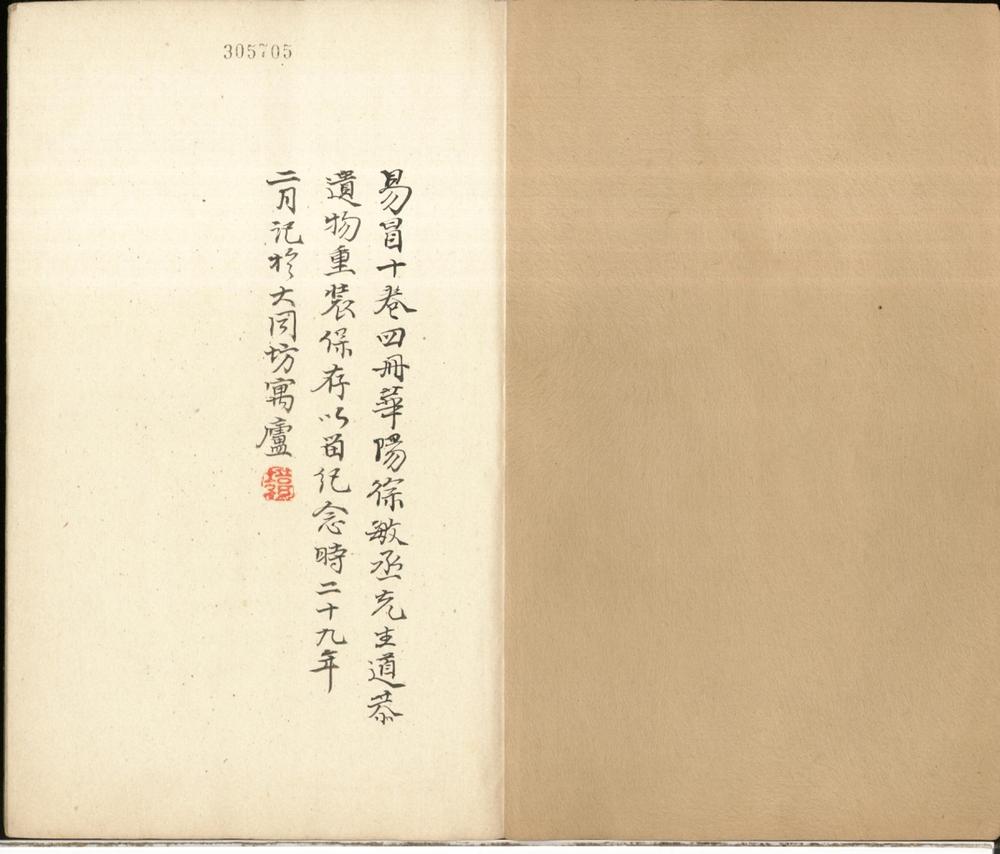 305705
易冒十卷四冊華陽徐敏丞先生道恭
遺物重裝保存以留紀念時二十九年
二月記於大同坊寓廬